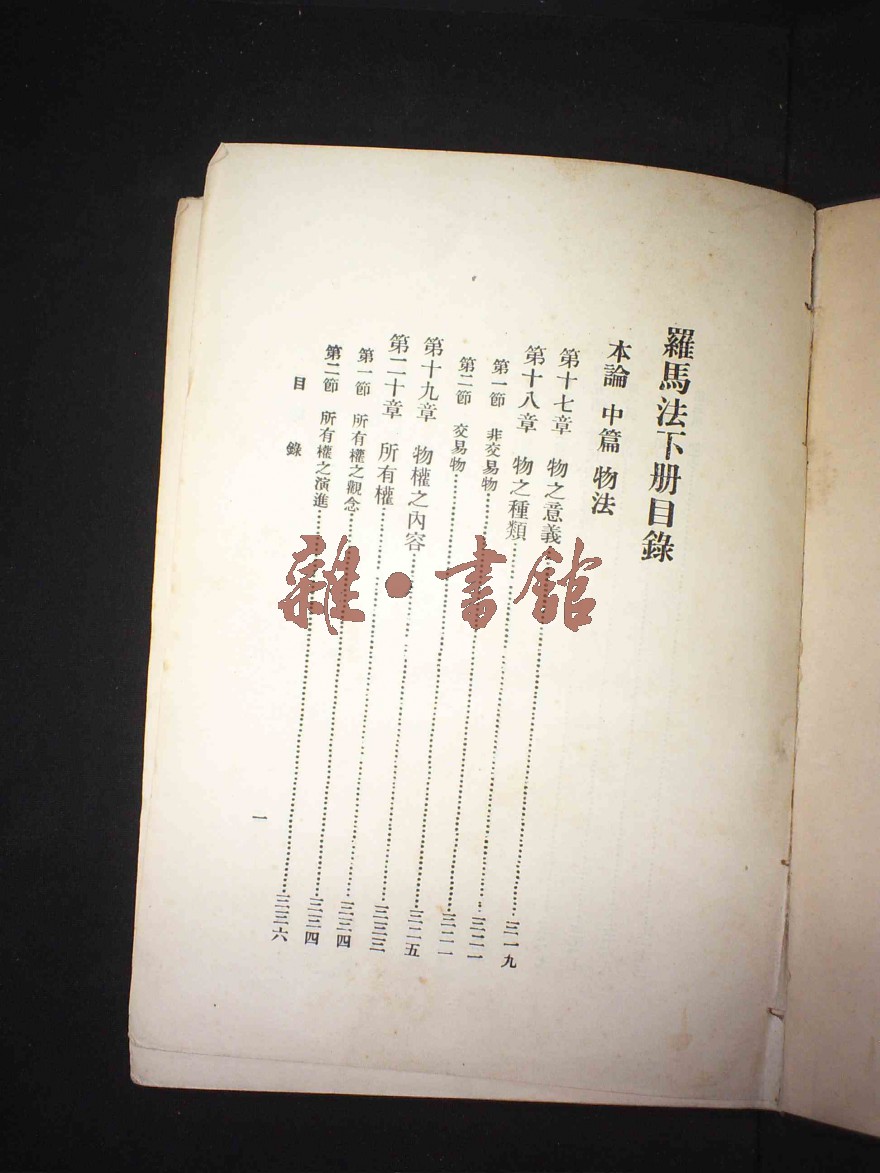 羅馬法下册目錄
本論 中篇 物法
第十七章 物之意義……三一九
第十八章 物之種類……三二一
第一節 非交易物……三二一
第二節 交易物……三二五
第十九章 物權之內容……三三三
第二十章 所有權……三三四
第一節 所有權之觀念……三三四
第二節 所有權之演進……三三六
目錄
一
雜·書館